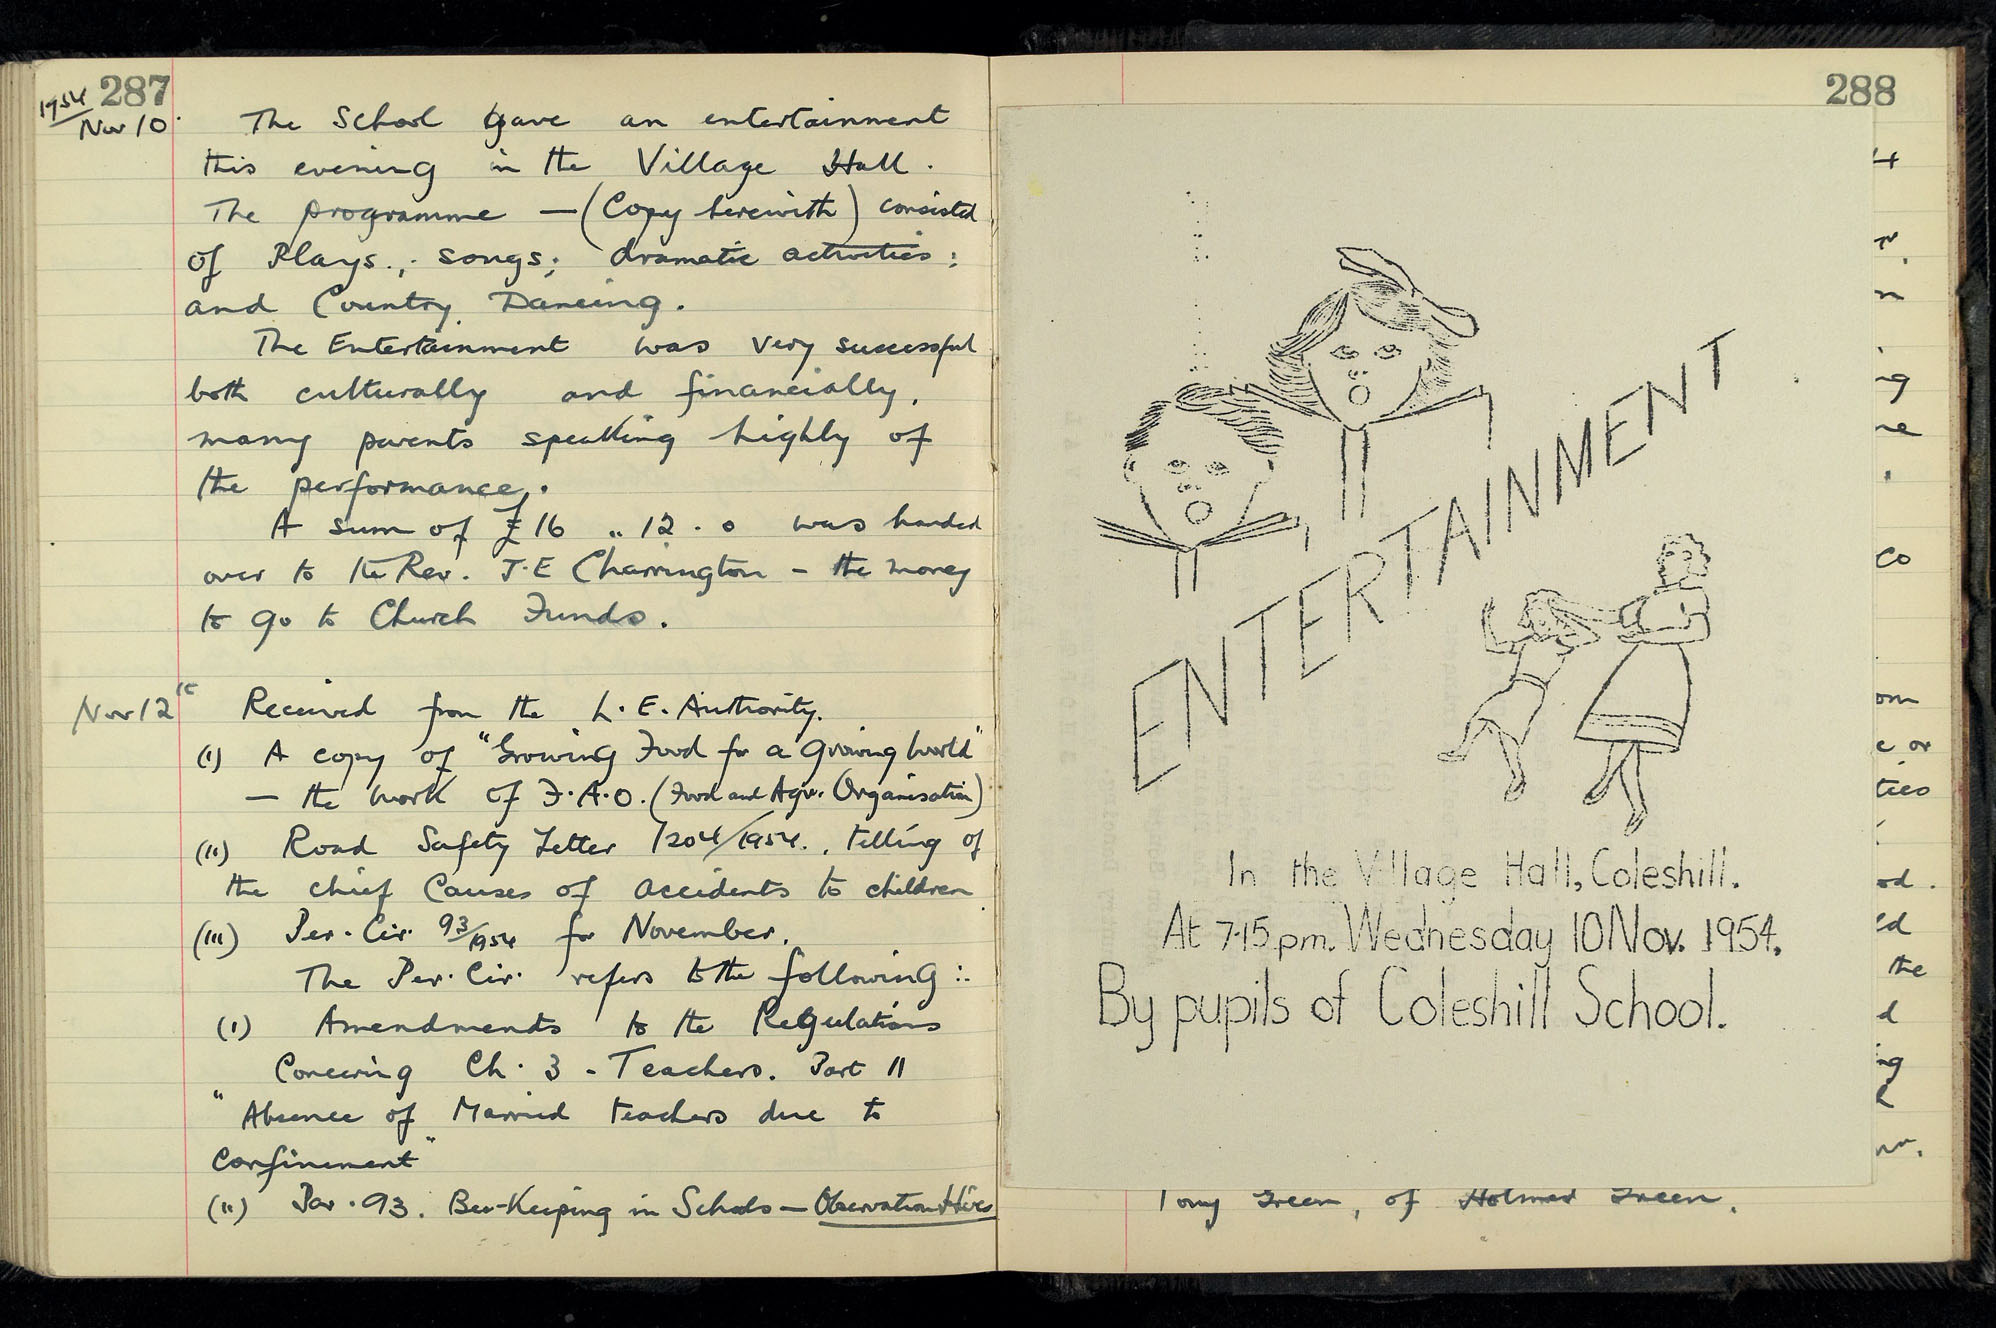 287
1954
Nov 10.
The School gave an entertainment
this evening in the Village Hall.
The programme — (Copy herewith) consisted
of Plays.; songs; dramatic activities;
and Country Dancing.
The Entertainment was very successful
both culturally and financially,
many parents speaking highly of
the performance.
A sum of £16 .. 12 . 0 was handed
over to the Rev. J.E Charrington – the money
to go to Church Funds.
Nov 12th
Received from the L.E. Authority.
(i) A copy of "Growing Food for a growing world"
— the work of F.A.O. (Food and Agr. Organisation)
(ii) Road Safety Letter 1204/1954., telling of
the chief Causes of accidents to children
(iii) Per. Cir. 93/1954 for November.
The Per. Cir. refers to the following :-
(i) Amendments to the Regulations
Ch. 3 - Teachers. Part II
"Absence of Married teachers due to
Confinement"
(ii) Par. 93. Bee-Keeping in Schools — Observation Hives
288
ENTERTAINMENT
In the Village Hall, Coleshill.
At 7.15 pm. Wednesday 10 Nov. 1954.
By pupils of Coleshill School.
n
ng
ne
co
om
e or
ties
od.
ld
the
d
ng
Tony Green, of Holmer Green.